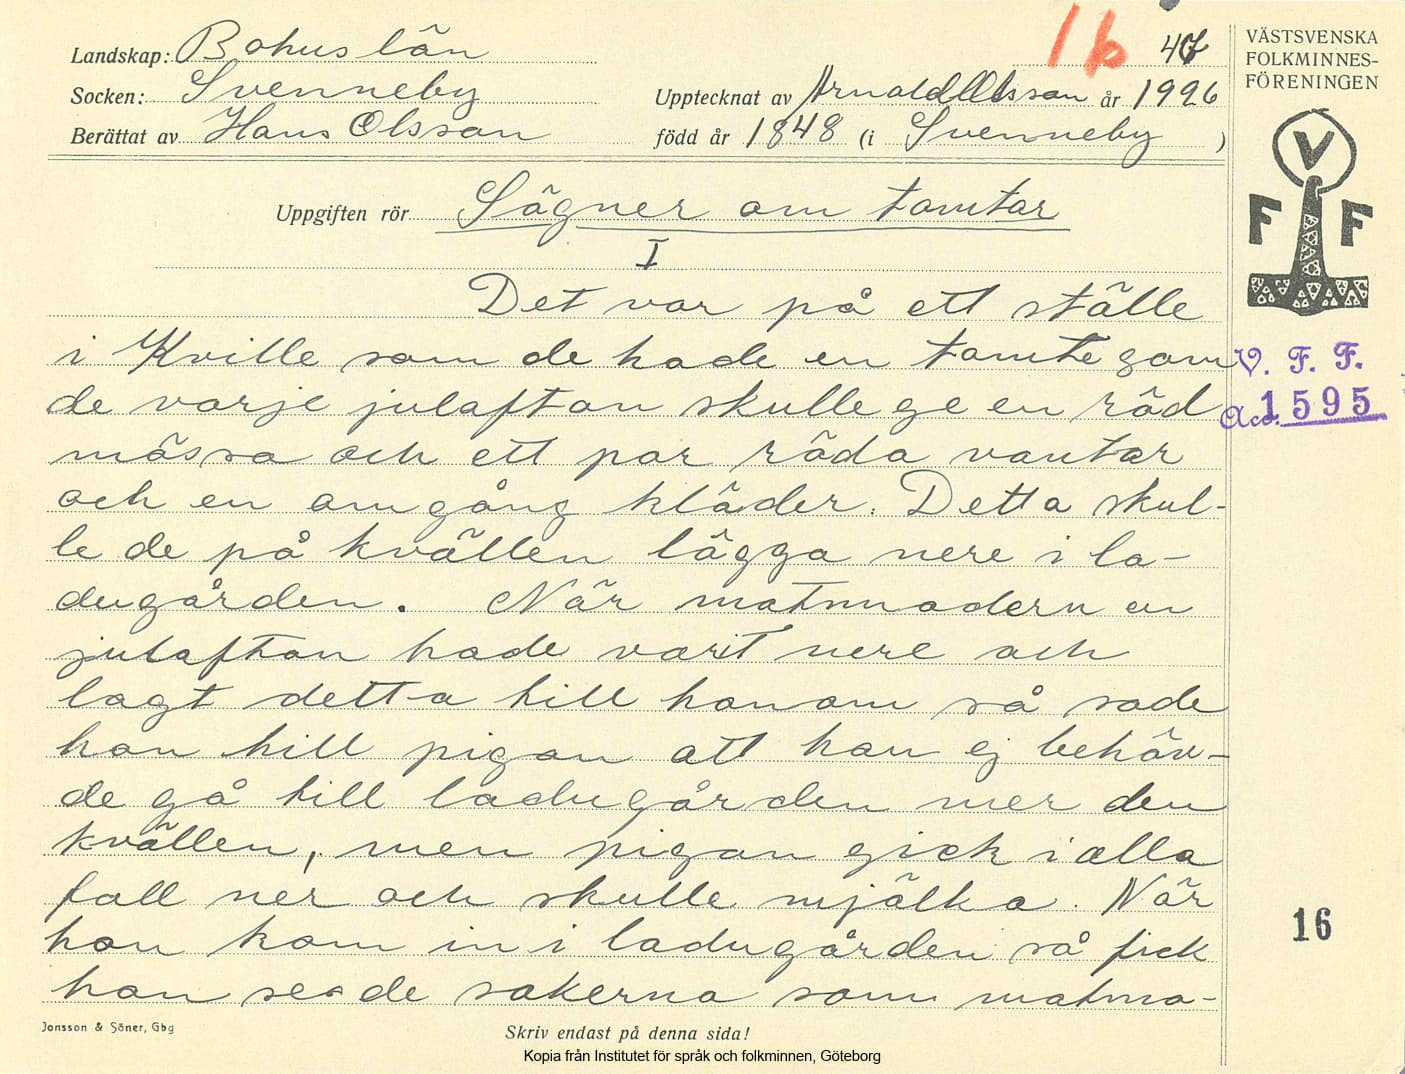 Landskap: Bohuslän
Socken: Svenneby
Berättat av Hans Olsson
16
47
Upptecknat av Arnold Olsson år 1926
född år 1848 (i Svenneby )
VÄSTSVENSKA
FOLKMINNES-
FÖRENINGEN
V
F F
Uppgiften rör Sägner om tomtar
I
Det var på ett ställe
i Kville som de hade en tomte som
de varje julafton skulle ge en röd
mössa och ett par röda vantar
och en omgång kläder. Detta skul-
le de på kvällen lägga nere i la-
dugården. När matmodern en
julafton hade varit nere och
lagt detta till honom så sade
hon till pigan att hon ej behöv-
de gå till ladugården mer den
kvällen, men pigan gick i alla
fall ner och skulle mjölka. När
hon kom in i ladugården så fick
hon se de sakerna som matmo-
V. F. F.
Acc. 1595
16
Jonsson & Söner, Gbg
Skriv endast på denna sida!
Kopia från Institutet för språk och folkminnen, Göteborg